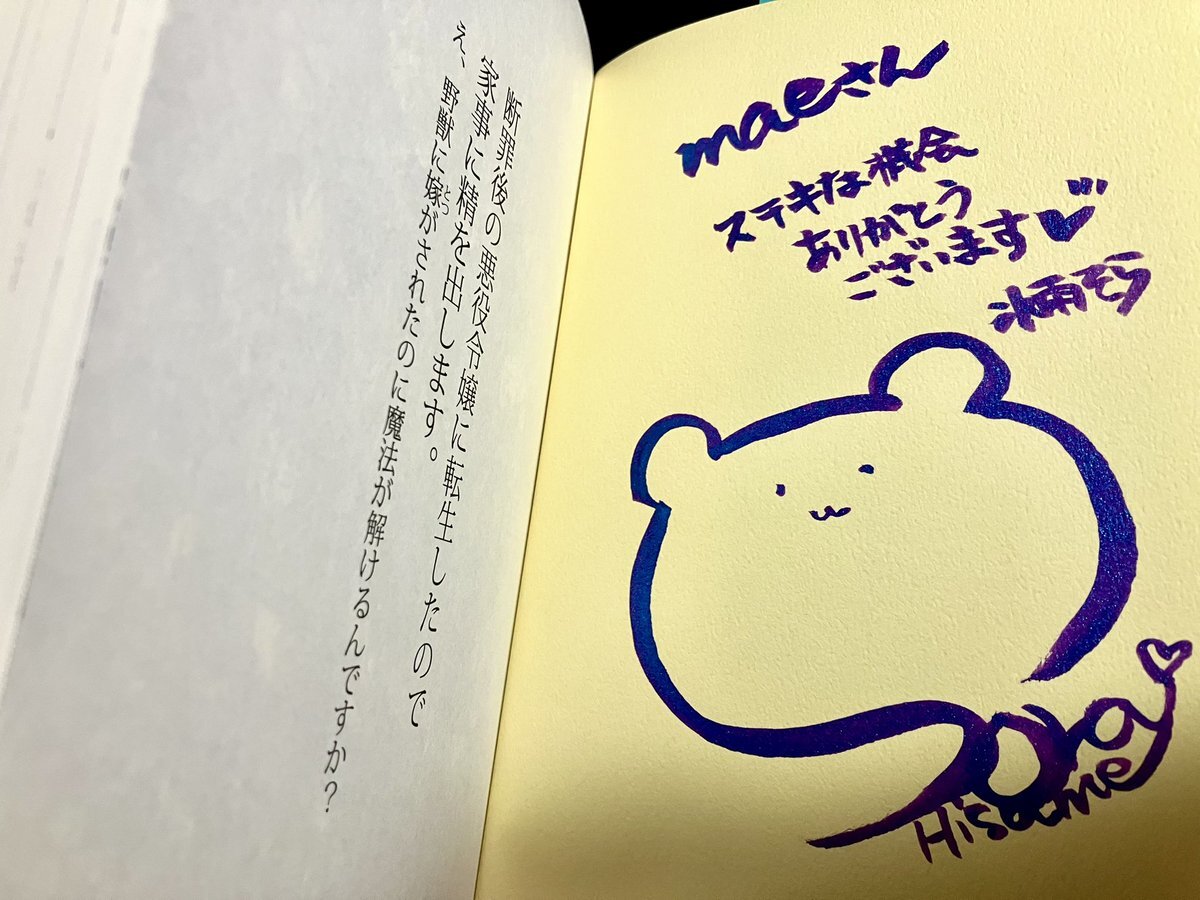 断罪後の悪役令嬢に転生したので
家事に精を出します。
え、野獣に嫁がされたのに魔法が解けるんですか？
とつ
maeさん
ステキな機会
ありがとう
ございます♥
氷雨そら
Sora
Hisame